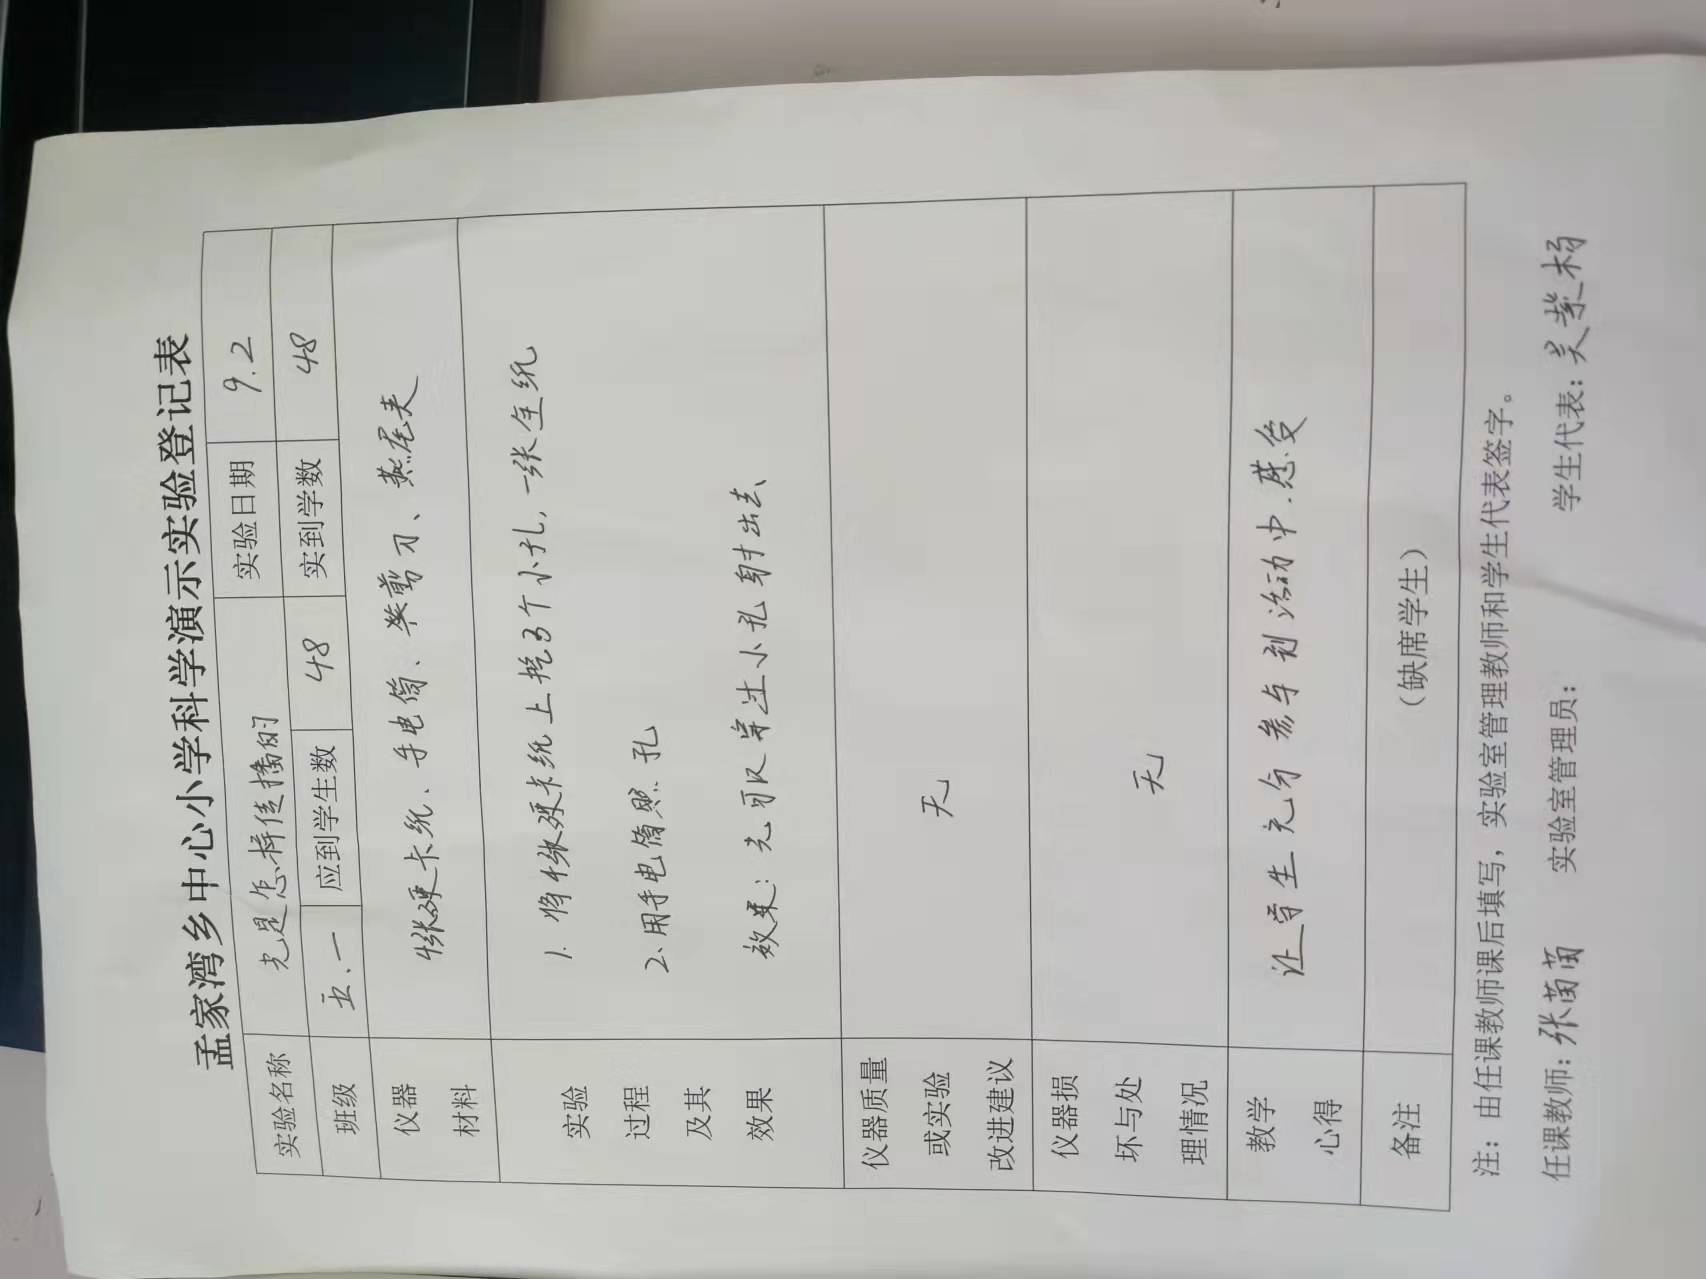 孟家湾乡中心小学科学演示实验登记表
实验名称 光是怎样传播的 实验日期 9.2
班级 五.一 应到学生数 48 实到学数 48
仪器
材料
4张硬卡纸、手电筒、剪刀、燕尾夹
实验
过程
及其
效果
1. 将4张硬卡纸上挖3个小孔,一张全纸
2.用手电筒照孔
效果:光可以穿过小孔射出去
仪器质量
或实验
改进建议
无
仪器损
坏与处
理情况
无
教学
心得
让学生充分参与到活动中.感受
备注
(缺席学生)
注:由任课教师课后填写,实验室管理教师和学生代表签字。
任课教师:张苗苗 实验室管理员: 学生代表:吴紫杨